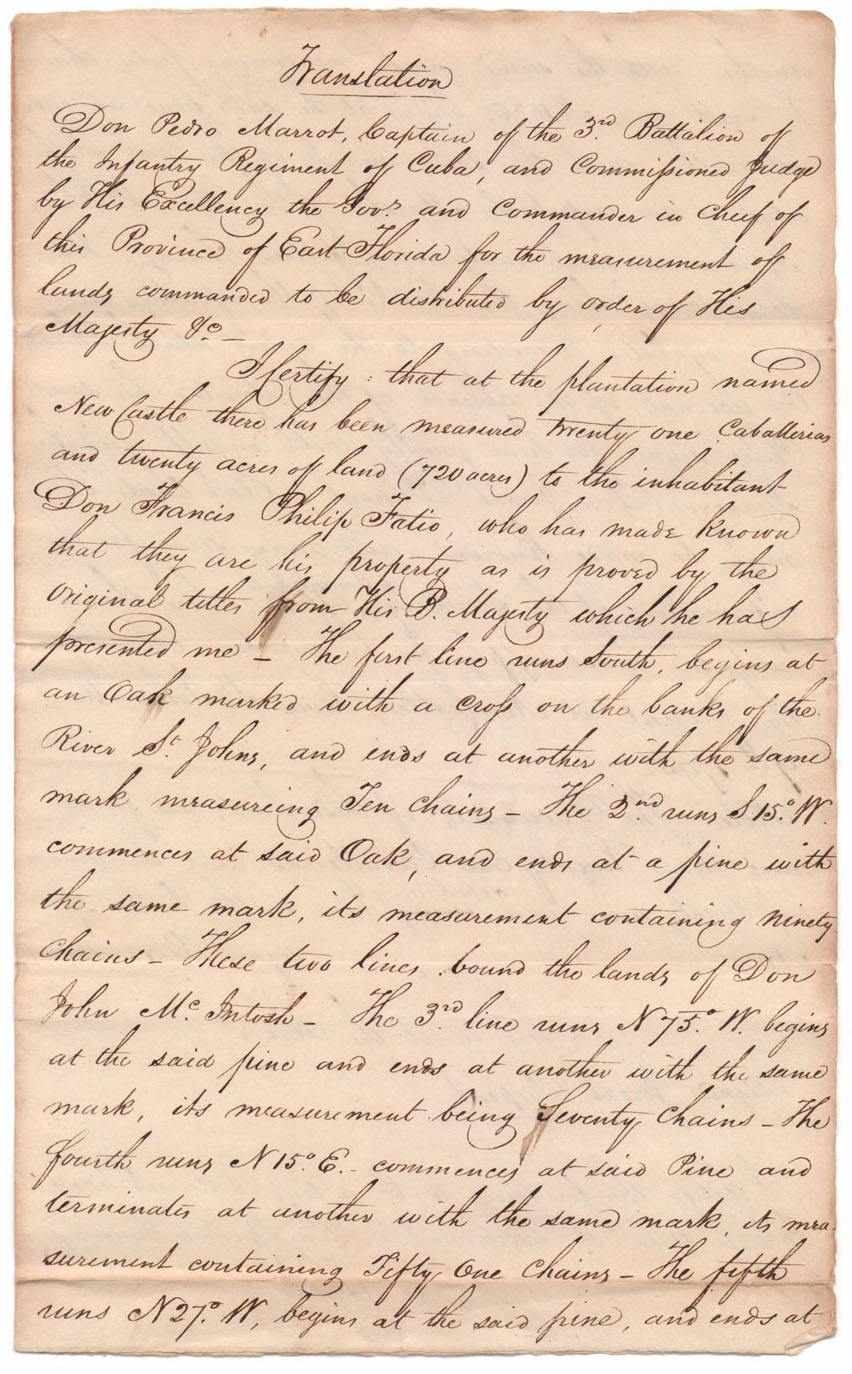 Translation
Don Pedro Marrot, Captain of the 3rd Battalion of
the Infantry Regiment of Cuba, and Commissioned Judge
by His Excellency the Govr. and Commander in Cheef of
this Province of East Florida for the measurement of
lands commanded to be distributed by order of His
Majesty &c —
I Certify : that at the plantation named
New Castle there has been measured twenty one Caballerias
and twenty acres of land (720 acres) to the inhabitant
Don Francis Philip Fatio, who has made known
that they are his property as is proved by the
original titles from His B. Majesty which he has
presented me — The first line runs South, begins at
an Oak marked with a cross on the banks of the
River St. Johns, and ends at another with the same
mark measureing Ten Chains — The 2nd runs S 15.° W.
commences at said Oak, and ends at a pine with
the same mark, its measurement containing ninety
Chains — These two lines bound the lands of Don
John Mc. Intosh — The 3rd line runs N 75.° W. begins
at the said pine and ends at another with the same
mark, its measurement being Seventy Chains — The
fourth runs N 15.° E. — commences at said Pine and
terminates at another with the same mark, its mea-
surement containing Fifty One Chains — The fifth
runs N 27.° W, begins at the said pine, and ends at